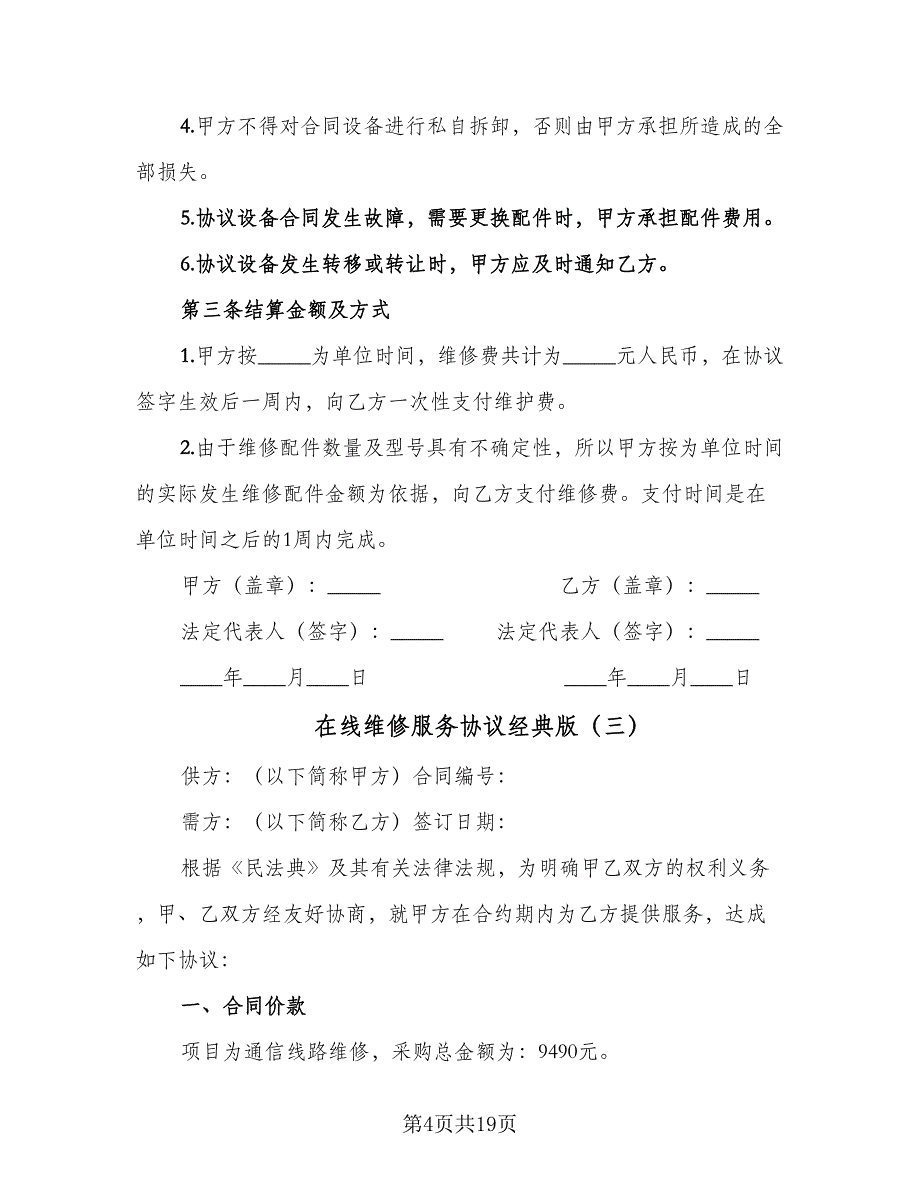 4.甲方不得对合同设备进行私自拆卸，否则由甲方承担所造成的全
部损失。
5.协议设备合同发生故障，需要更换配件时，甲方承担配件费用。
6.协议设备发生转移或转让时，甲方应及时通知乙方。
第三条结算金额及方式
1.甲方按_____为单位时间，维修费共计为_____元人民币，在协议
签字生效后一周内，向乙方一次性支付维护费。
2.由于维修配件数量及型号具有不确定性，所以甲方按为单位时间
的实际发生维修配件金额为依据，向乙方支付维修费。支付时间是在
单位时间之后的1周内完成。
甲方（盖章）：_____ 乙方（盖章）：_____
法定代表人（签字）：_____ 法定代表人（签字）：_____
____年____月____日 ____年____月____日
在线维修服务协议经典版（三）
供方：（以下简称甲方）合同编号：
需方：（以下简称乙方）签订日期：
根据《民法典》及其有关法律法规，为明确甲乙双方的权利义务
，甲、乙双方经友好协商，就甲方在合约期内为乙方提供服务，达成
如下协议：
一、合同价款
项目为通信线路维修，采购总金额为：9490元。
第4页共19页